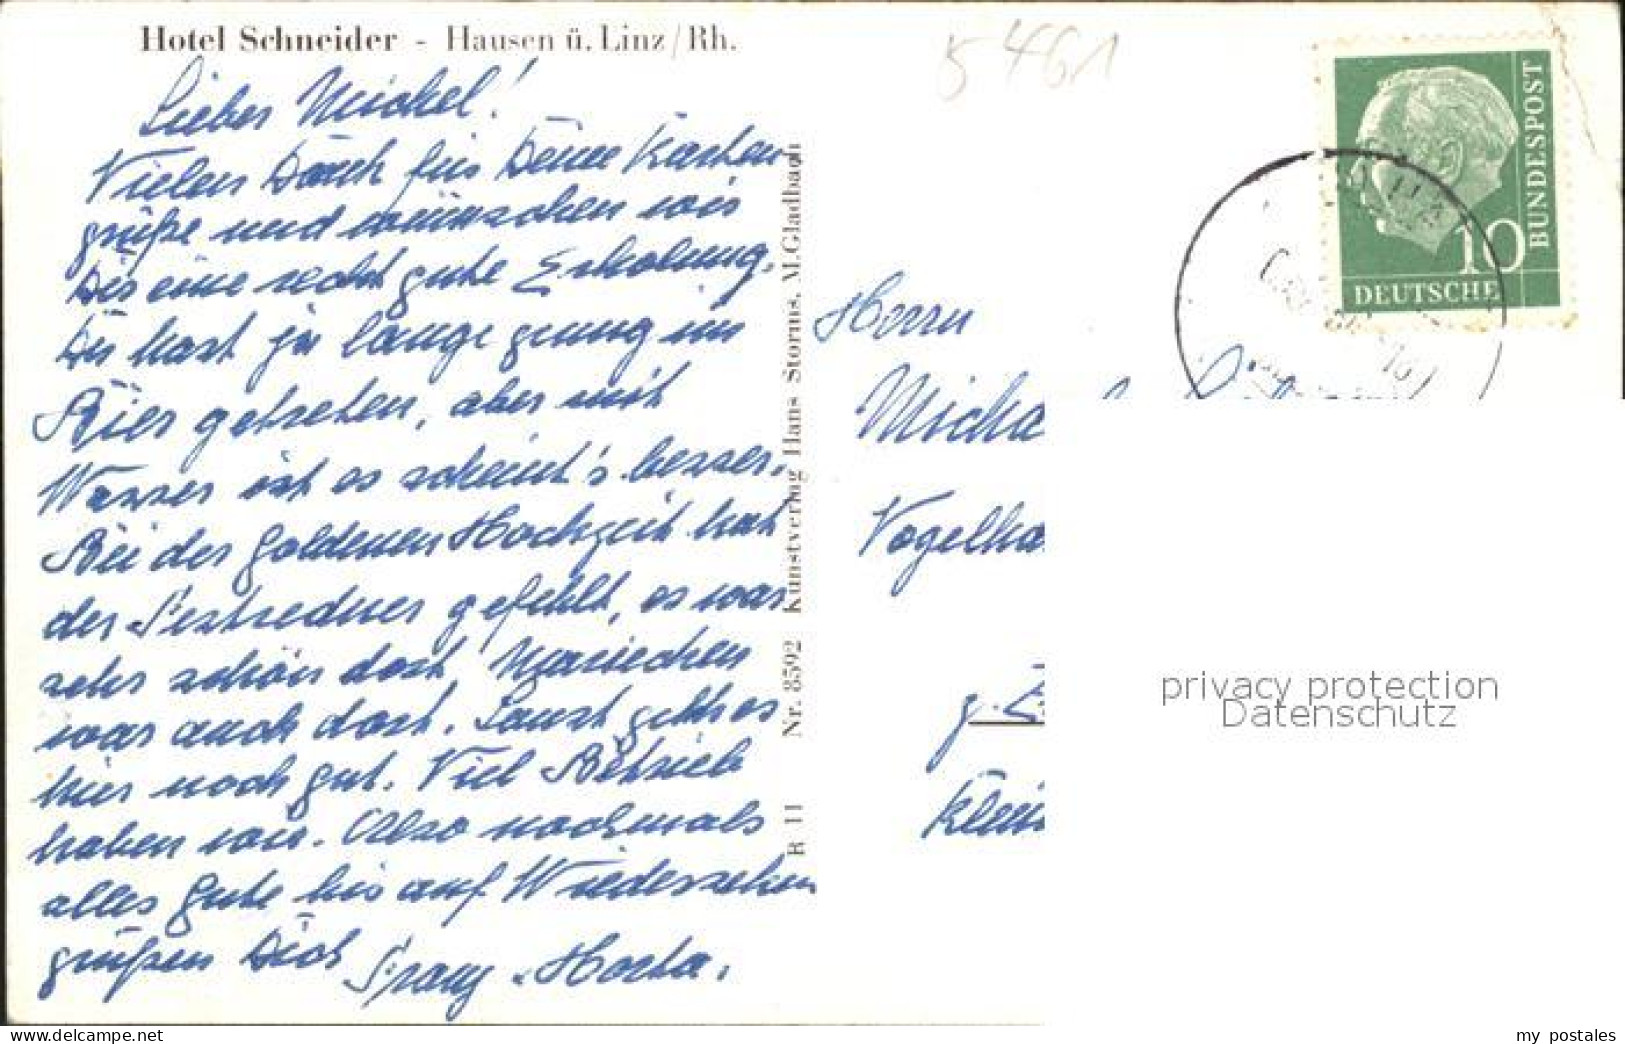 Hotel Schneider - Hausen ü. Linz/Rh.
5461
Lieber Michel!
Vielen Dank für Deine Karten
grüße und wünschen wir
Dir eine recht gute Erholung.
Du hast ja lange genug im
Bier getreten, aber mit
Wasser ist es scheint's besser.
Bei der goldenen Hochzeit hat
der Festredner gefehlt, es war
sehr schön dort Mariechen
war auch dort. Sonst geht es
hier noch gut. Viel Betrieb
haben wir. Also nochmals
alles gute bis auf Wiedersehen
grüßen Dich Franz Horta.
R 11 Nr. 8592 Kunstverlag Hans Storms, M.Gladbach
DEUTSCHE
BUNDESPOST
10
Herrn
Micha
Vogelha
z.
Klein
privacy protection
Datenschutz
my postales